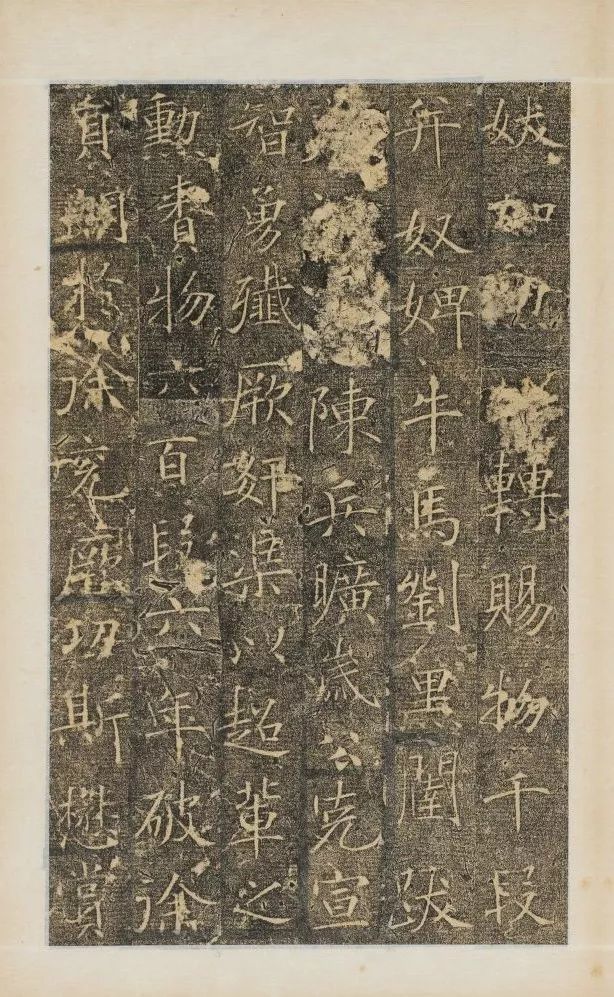 妓加轉賜物千段
并奴婢牛馬劉黑闥跋
陳兵曠歲公克宣
智勇殲厥姧渠以超輩之
勳賚物六百段六年破徐
員朗於徐兖功斯懋賞